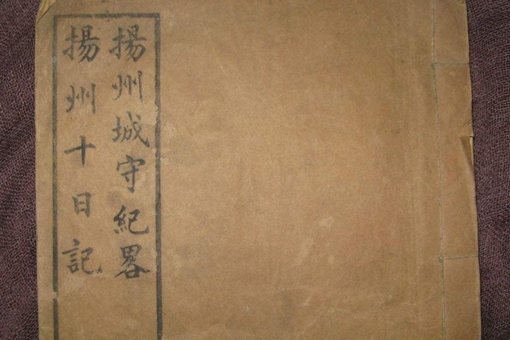 揚州城守紀畧
揚州十日記